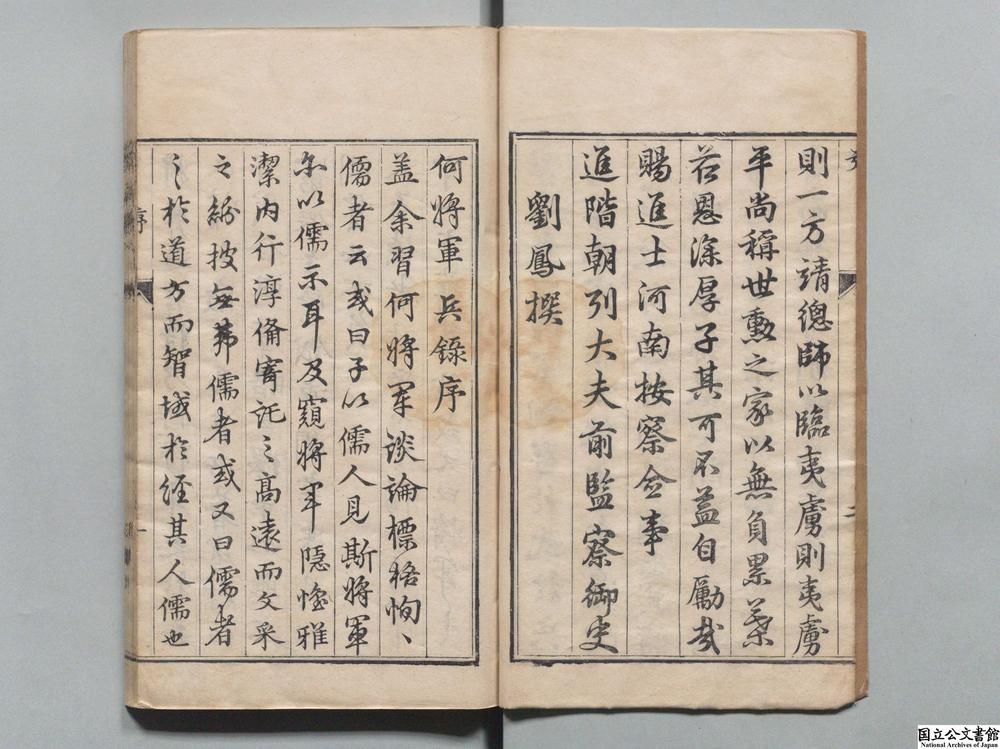 則一方請總師以臨夷虜則夷虜
平尚稱世勲之家以無負累葉
若恩深厚子其可不益自勵哉
賜進士河南按察僉事
進階朝列大夫前監察御史
劉鳳撰
二
何將軍 兵錄序
盖余習何將軍談論標格恂〻
儒者云或曰子以儒人見斯將軍
尓以儒示耳及窺將軍隱憺雅
潔内行淳備寄託之高遠而文采
之紛披無葬儒者或又曰儒者
之於道方而智域於經其人儒也
序
一
国立公文書館
National Archives of Japan